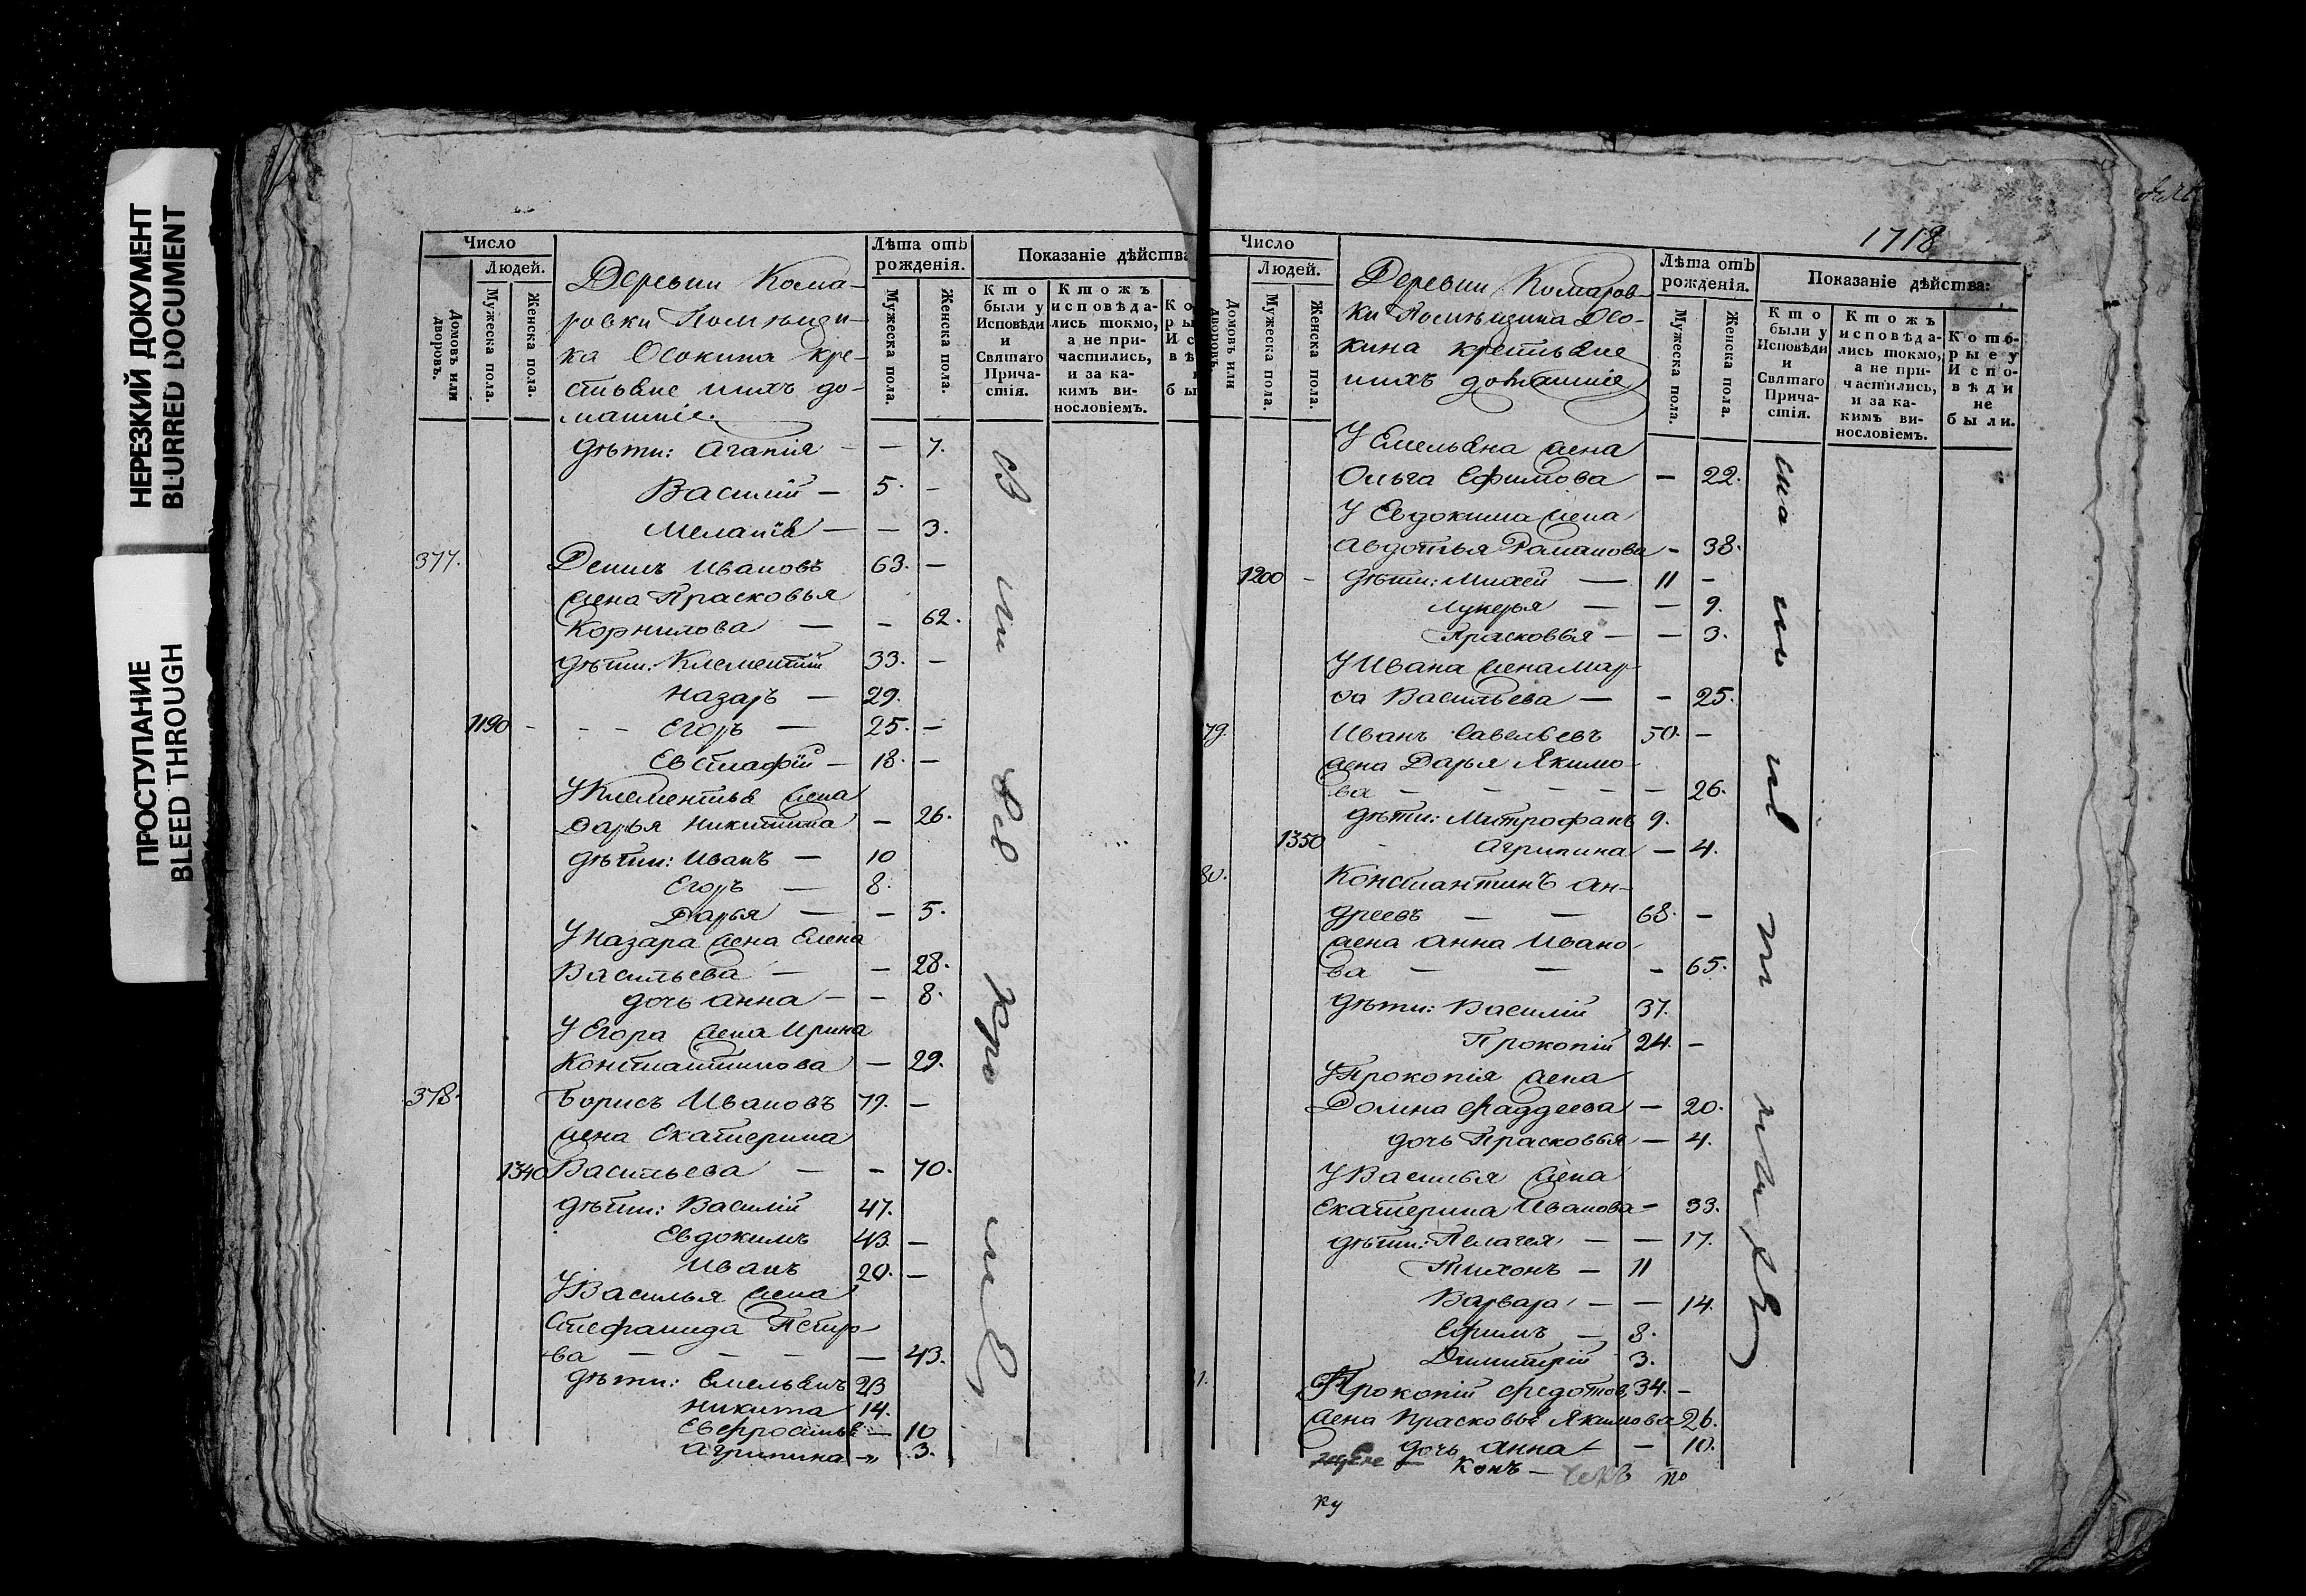 НЕРЕЗКИЙ ДОКУМЕНТ
BLURRED DOCUMENT
ПРОСТУПАНИЕ
BLEED THROUGH
Число
Людей.
Домовъ или дворовъ.
Мужеска пола.
Женска пола.
Деревни Кома-
ровки Помѣщи-
ка Осокина кре-
стьяне ихъ до-
машніе.
Лѣта отъ
рожденія.
Мужеска пола.
Женска пола.
Показаніе дѣйства
Кто
были у
Исповѣди
и
Святаго
Прича-
стія.
Ктожъ
исповѣда-
лись токмо,
а не при-
частились,
и за ка-
кимъ ви-
нословіемъ.
дѣти: Агапія - - 7.
Василій - 5. -
Меланія - - 3.
377. Денисъ Ивановъ 63. -
жена Прасковья
Корнилова - - 62.
дѣти: Клементій 33. -
Назаръ - 29.
1190 - - - Егоръ - 25. -
Евстафій - 18. -
У Клементья жена
Дарья Никитина - 26.
дѣти: Иванъ - 10
Егоръ - 8.
Дарья - - 5.
У Назара жена Елена
Васильева - - 28.
дочь Анна - - 8.
У Егора жена Ирина
Константинова - 29.
378. Борисъ Ивановъ 79. -
жена Екатерина
1340 Васильева - - 70.
дѣти: Василій 47.
Евдокимъ 43. -
Иванъ 20. -
У Василья жена
Стефанида Петро-
ва - - - - 43.
дѣти: Емельянъ 23
Никита 14.
10
Агрипина - 3.
1718
Число
Людей.
Домовъ или дворовъ.
Мужеска пола.
Женска пола.
Деревни Комаров-
ки Помѣщика Осо-
кина крестьяне
ихъ домашніе
Лѣта отъ
рожденія.
Мужеска пола.
Женска пола.
Показаніе дѣйства:
Кто
были у
Исповѣди
и
Святаго
Прича-
стія.
Ктожъ
исповѣда-
лись токмо,
а не при-
частились,
и за ка-
кимъ ви-
нословіемъ.
Кото-
рые у
Испо-
вѣди
не
были.
У Емельяна жена
Ольга Ефимова - 22.
У Евдокима жена
Авдотья Романова - 38.
1200 - дѣти: Михей - 11 -
Лукерья - - 9.
Прасковья - - 3.
У Ивана жена Мар-
ѳа Васильева - - 25.
79. Иванъ Савельевъ 50. -
жена Дарья Якимо-
ва - - - - - 26.
дѣти: Митрофанъ 9.
1350 - Агрипина - 4.
80. Константинъ Ан-
дреевъ - - 68. -
жена Анна Ивано-
ва - - - 65.
дѣти: Василій 37.
Прокопій 24. -
У Прокопія жена
Домна Фаддеева - 20.
дочь Прасковья - 4.
У Василья жена
Екатерина Иванова - 33.
дѣти: Пелагея - - 17.
Тихонъ - 11
Варвара - - 14.
Ефимъ - 8.
Димитрій 3.
Прокопій Федотов 34. -
жена Прасковья Якимова 26.
дочь Анна - - 10.